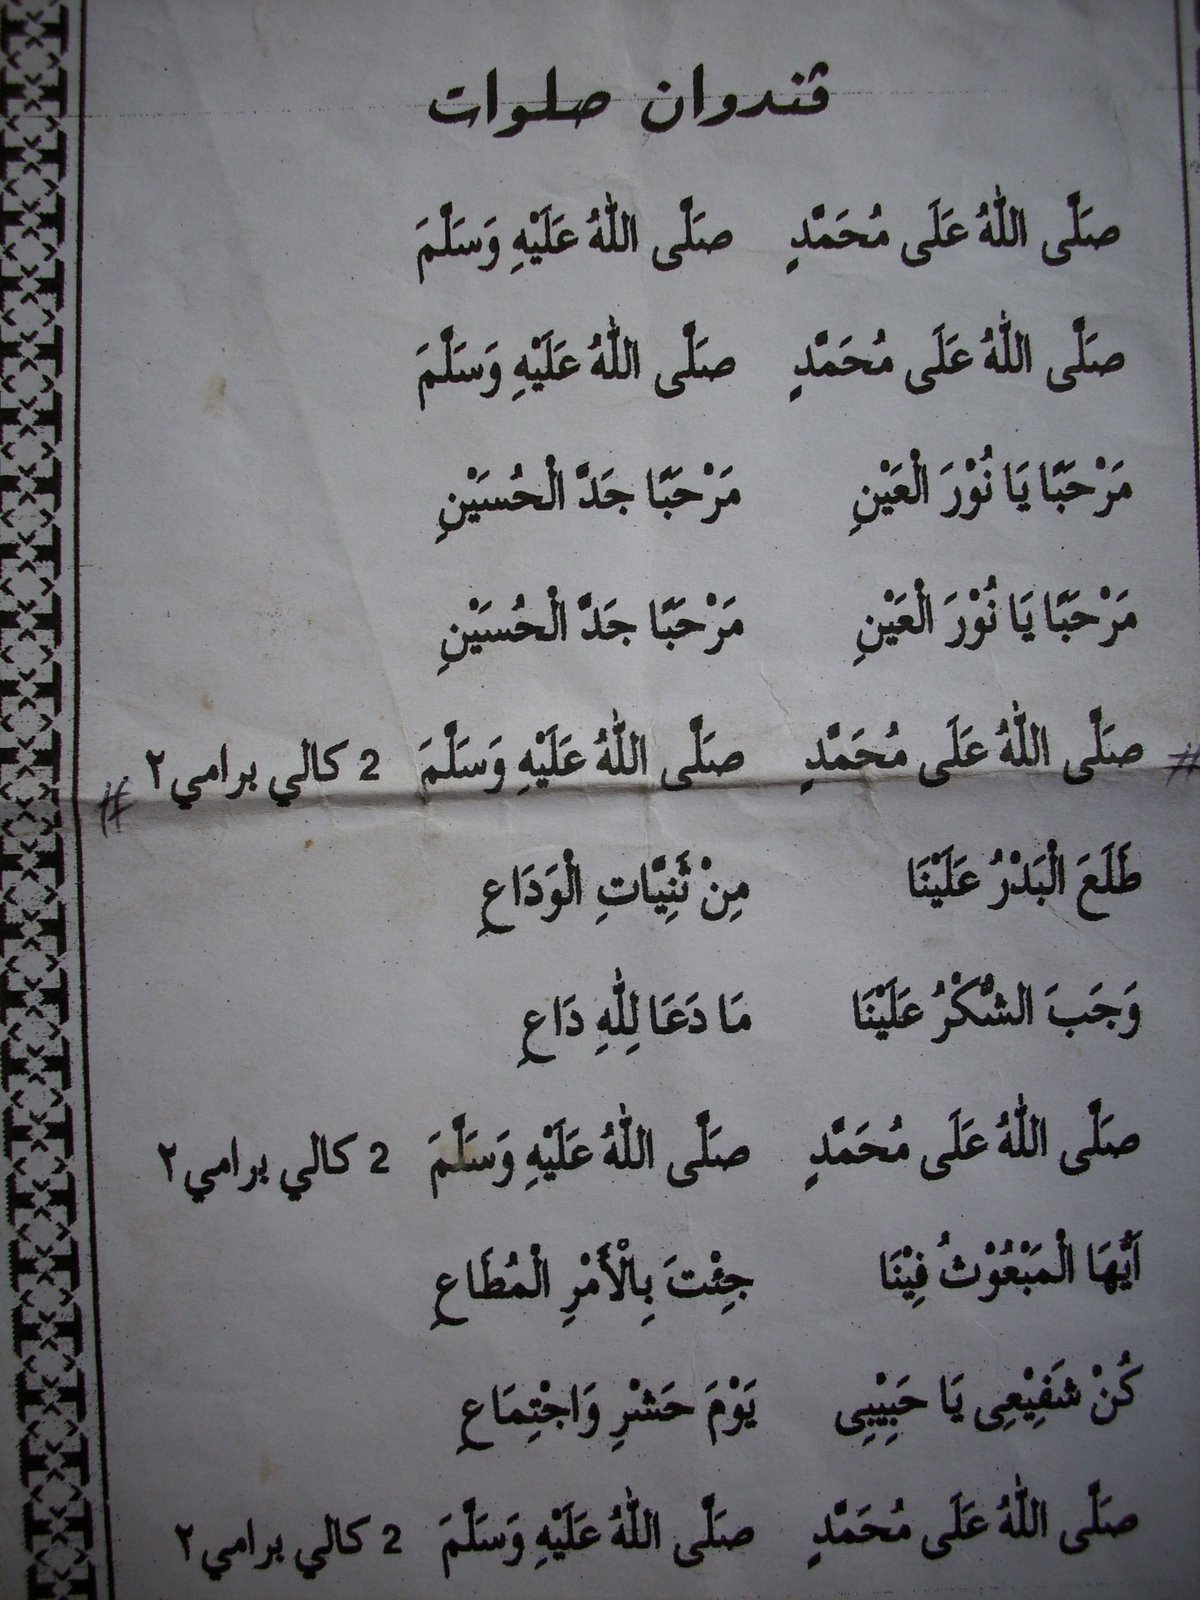 ڤندوان صلوات
صَلَّى اللّٰهُ عَلَى مُحَمَّدٍ صَلَّى اللّٰهُ عَلَيْهِ وَسَلَّمَ
صَلَّى اللّٰهُ عَلَى مُحَمَّدٍ صَلَّى اللّٰهُ عَلَيْهِ وَسَلَّمَ
مَرْحَبًا يَا نُوْرَ الْعَيْنِ مَرْحَبًا جَدَّ الْحُسَيْنِ
مَرْحَبًا يَا نُوْرَ الْعَيْنِ مَرْحَبًا جَدَّ الْحُسَيْنِ
# صَلَّى اللّٰهُ عَلَى مُحَمَّدٍ صَلَّى اللّٰهُ عَلَيْهِ وَسَلَّمَ 2 كالي برامي٢ #
طَلَعَ الْبَدْرُ عَلَيْنَا مِنْ ثَنِيَّاتِ الْوَدَاعِ
وَجَبَ الشُّكْرُ عَلَيْنَا مَا دَعَا لِلّٰهِ دَاعِ
صَلَّى اللّٰهُ عَلَى مُحَمَّدٍ صَلَّى اللّٰهُ عَلَيْهِ وَسَلَّمَ 2 كالي برامي٢
اَيُّهَا الْمَبْعُوْثُ فِيْنَا جِئْتَ بِالْأَمْرِ الْمُطَاعِ
كُنْ شَفِيْعِى يَا حَبِيْبِى يَوْمَ حَشْرٍ وَاجْتِمَاعِ
صَلَّى اللّٰهُ عَلَى مُحَمَّدٍ صَلَّى اللّٰهُ عَلَيْهِ وَسَلَّمَ 2 كالي برامي٢